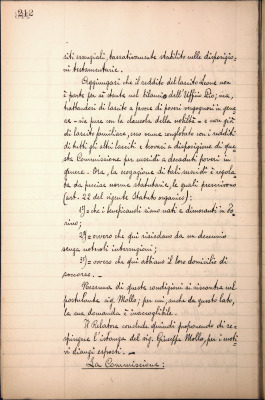 212
siti essenziali, tassativamente stabilito nelle disposizio=
ni testamentarie.
Aggiungasi che il reddito del lascito Leone non
è parte per sé stante nel bilancio dell'Uffizio Pio; ma,
trattandosi di lascito a favore di poveri vergognosi in gene
re - sia pure con la clausola della nobiltà - e non già
di lascito familiare, esso venne conglobato con i redditi
di tutti gli altri lasciti e trovasi a disposizione di que
sta Commissione per sussidi a decaduti poveri in
genere. Ora, la erogazione di tali sussidi è regola
ta da precise norme statutarie, le quali prescrivono
(art. 22 del vigente Statuto organico):
1°) = che i beneficandi siano nati e dimoranti in To
rino;
2°) = ovvero che vi risiedano da un decennio
senza notevoli interruzioni;
3°) = ovvero che qui abbiano il loro domicilio di
soccorso. -
Nessuna di queste condizioni si riscontra nel
postulante sig. Mollo; per cui, anche da questo lato,
la sua domanda è inaccoglibile.
Il Relatore conclude quindi proponendo di re=
spingere l'istanza del sig. Giuseppe Mollo, per i moti
vi dianzi esposti. -
La Commissione: